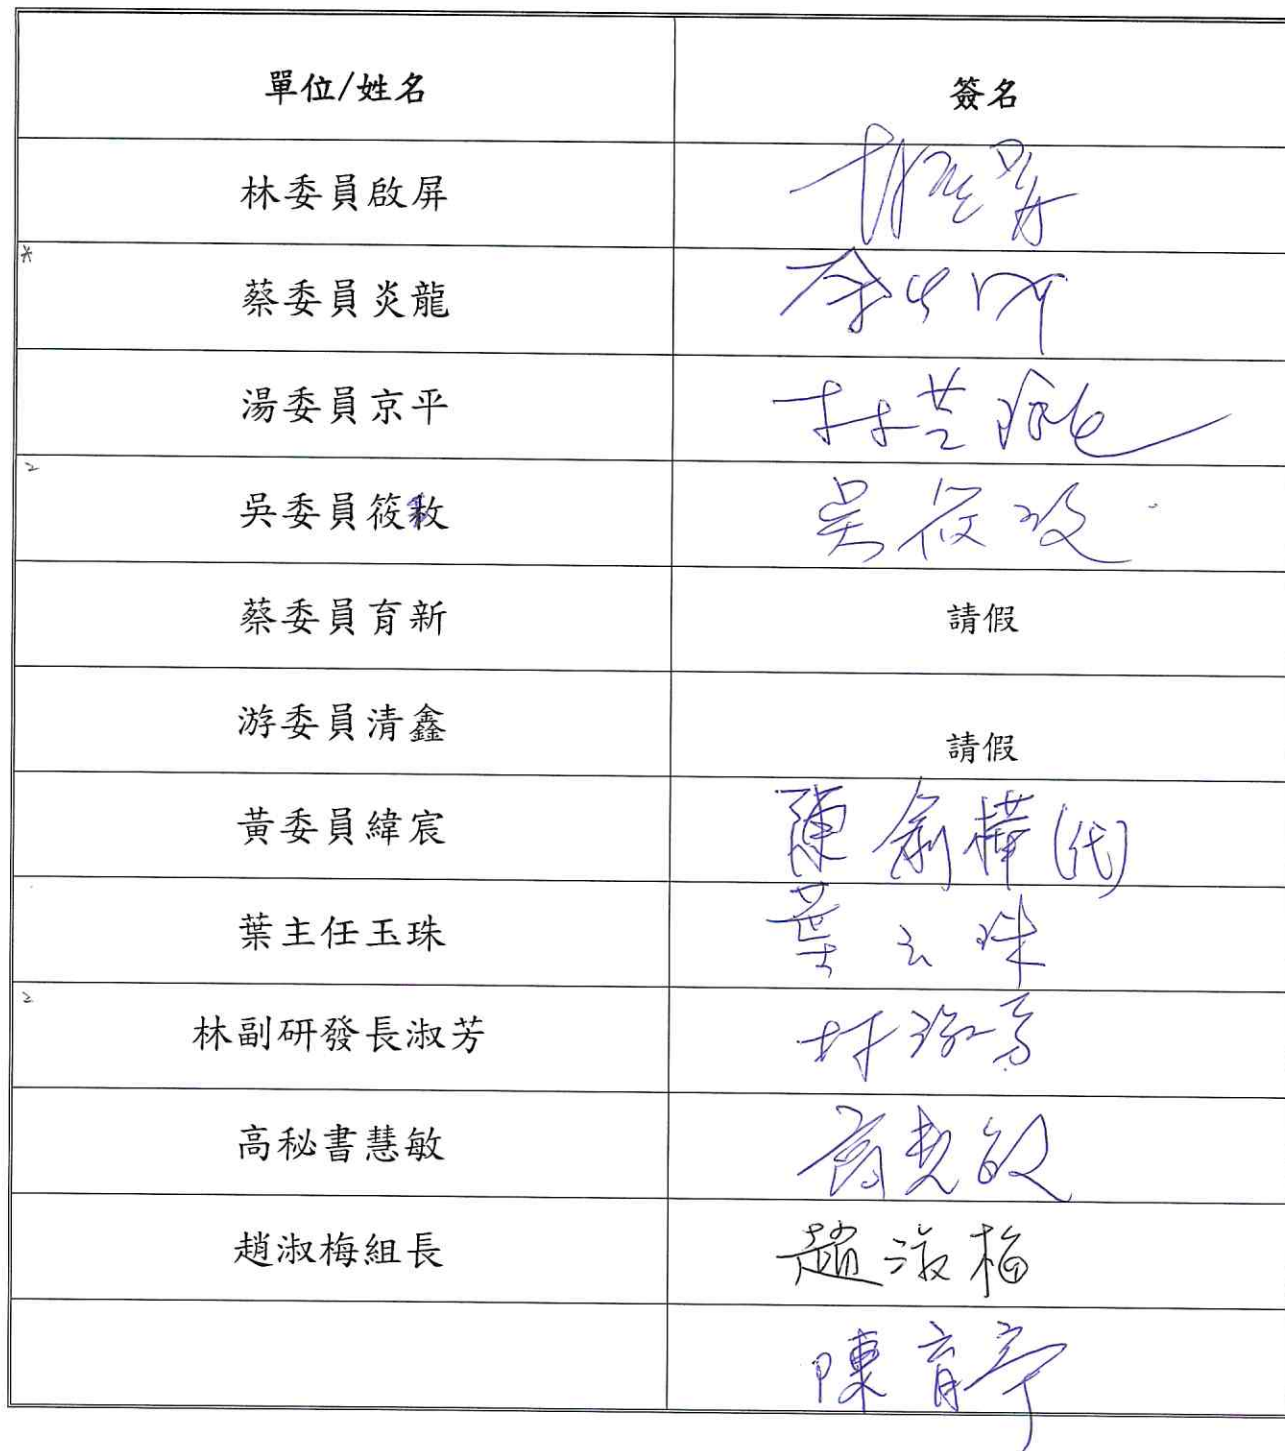 單位/姓名
簽名
林委員啟屏
蔡委員炎龍
湯委員京平
吳委員筱敉
吳筱玫
蔡委員育新
請假
游委員清鑫
請假
黃委員緯宸
陳 (代)
葉主任玉珠
葉玉珠
林副研發長淑芳
林淑芳
高秘書慧敏
高慧敏
趙淑梅組長
趙淑梅
陳育亭